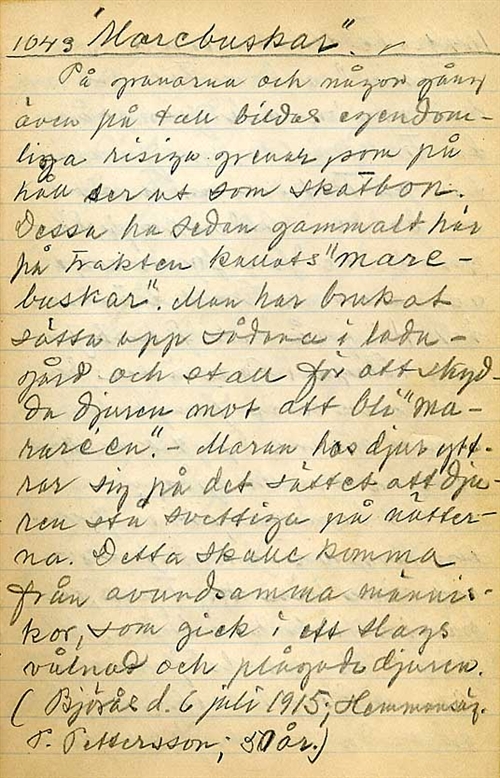 1043 "Marebuskar".
På granarna och någon gång
även på tall bildas egendom-
liga risiga grenar som på
håll ser ut som skatbon.
Dessa ha sedan gammalt här
på trakten kallats "mare-
buskar". Man har brukat
sätta opp sådana i ladu-
gård och stall för att skyd-
da djuren mot att bli "ma-
. - Maran hos djur ytt-
rar sig på det sättet att dju-
ren stå svettiga på nätter-
na. Detta skulle komma
från avundsamma männis-
kor, som gick i ett slags
vålnad och plågade djuren.
( d. 6 juli 1915; Hemmansäg.
P. Pettersson; 50 år.)